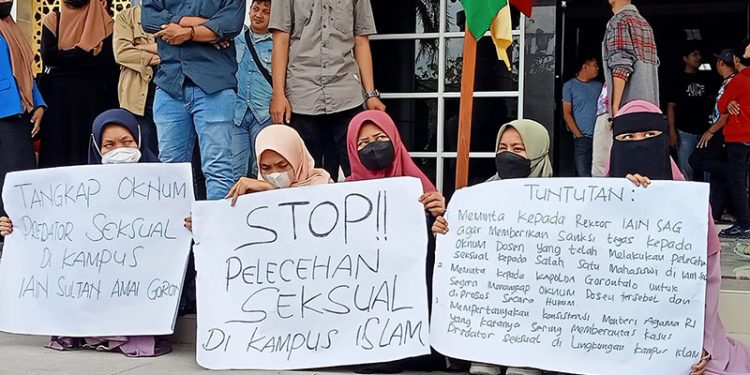 TANGKAP OKNUM
PREDATOR SEKSUAL
DI KAMPUS
IAIN SULTAN AMAI GORON
STOP!!
PELECEHAN
SEKSUAL
DI KAMPUS ISLAM
TUNTUTAN :
Meminta kepada Rektor IAIN SAG
agar Memberikan Sanksi tegas kepada
Oknum Dosen yang telah Melakukan
seksual kepada Salah Satu Mahasiswi di
2. Meminta kepada Kapolda Gorontalo untuk
Segera Menangkap OKNUM Dosen tersebut dan
di proses Secara Hukum
3. Mempertanyakan konsistensi Menteri Agama RI
yang katanya Sering Memberantas Kasus
Predator seksual di Lingkungan kampus Islam